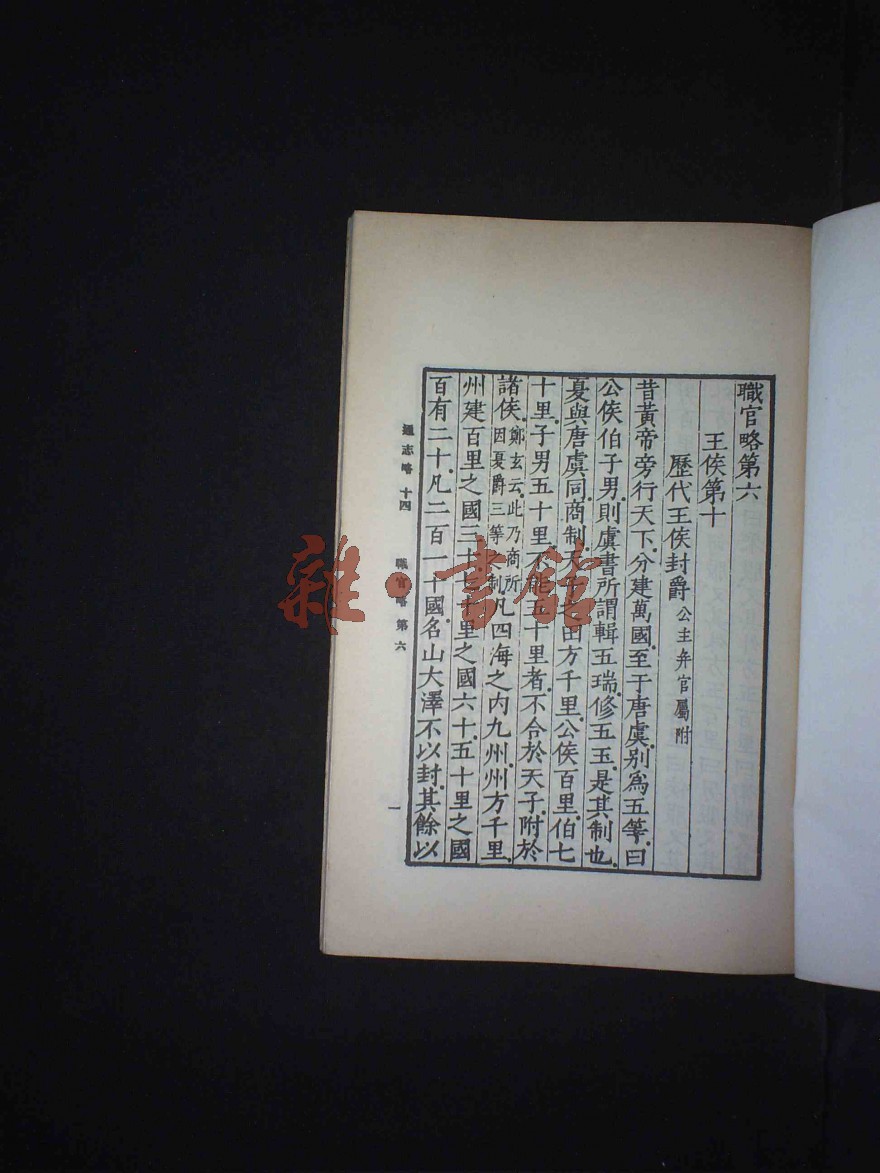 職官略第六
王侯第十
歷代王侯封爵公主并官屬附
昔黃帝旁行天下分建萬國至于唐虞別為五等曰
公侯伯子男則虞書所謂輯五瑞修五玉是其制也
夏與唐虞同商制天子之田方千里公侯百里伯七
十里子男五十里不能五十里者不合於天子附於
諸侯鄭玄云此乃商所因夏爵三等之制凡四海之內九州州方千里
州建百里之國三十七十里之國六十五十里之國
百有二十凡二百一十國名山大澤不以封其餘以
通志略 十四 職官略第六 一
雜·書館